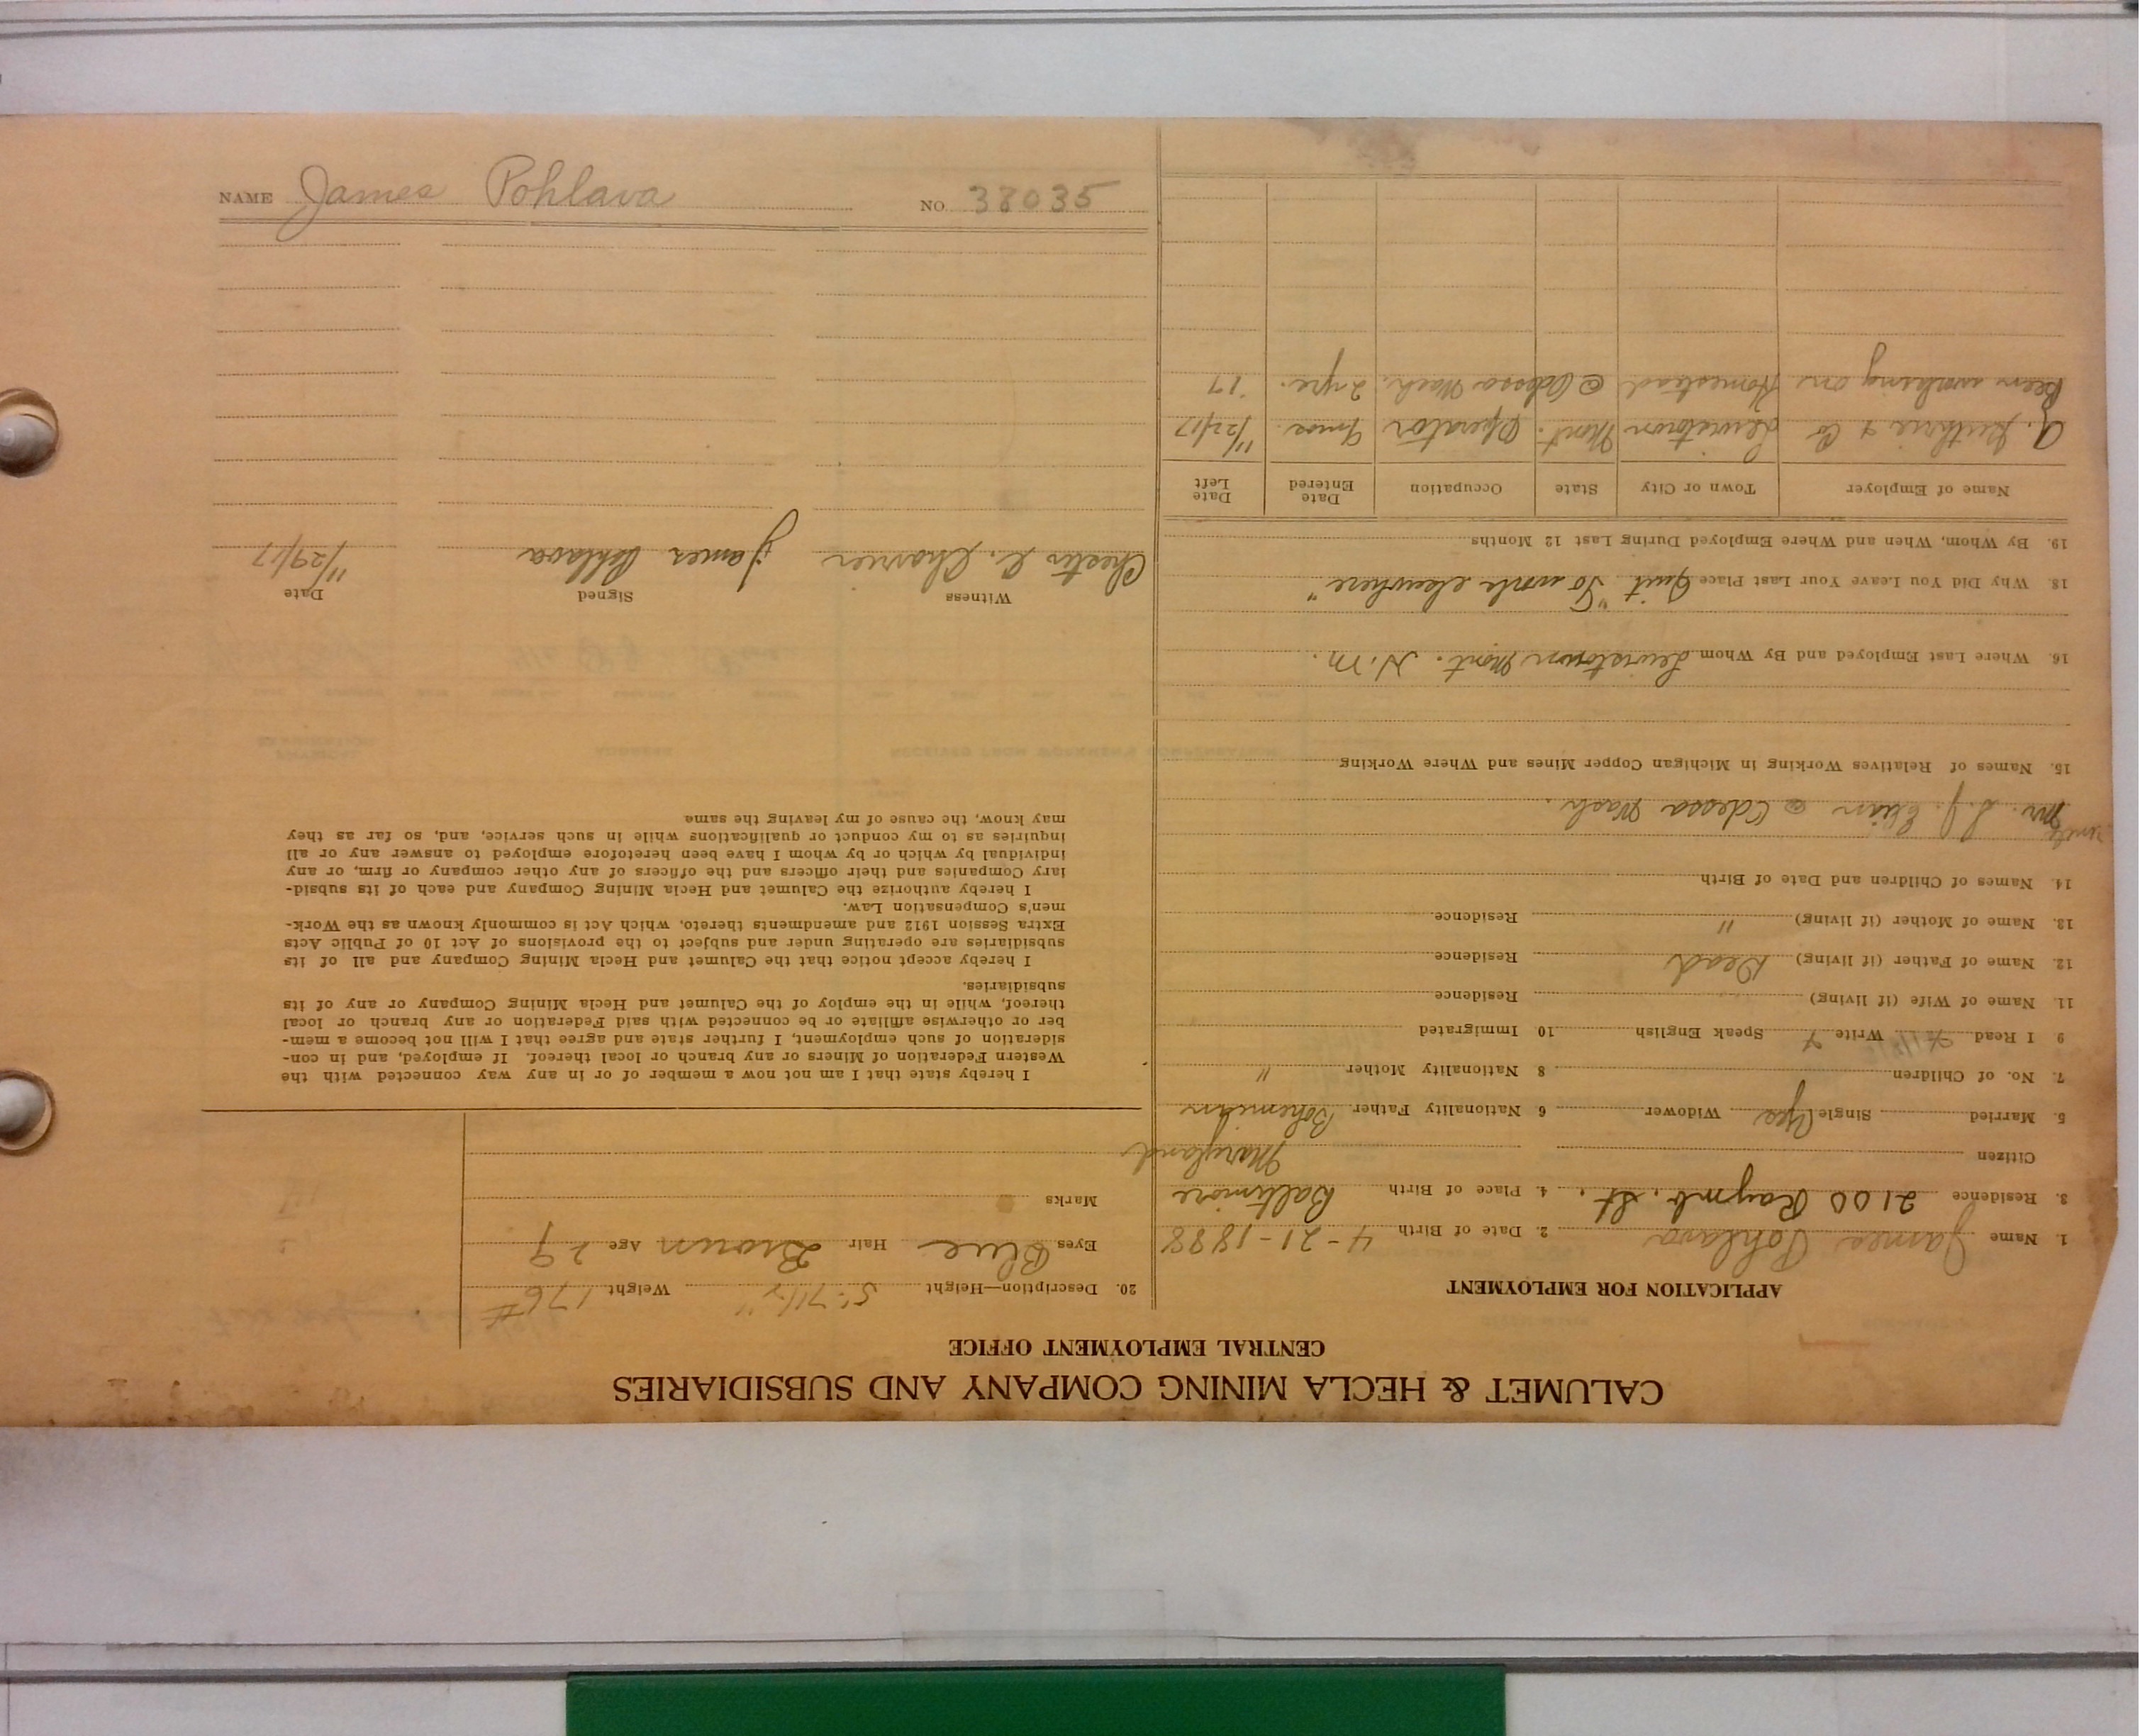 CALUMET & HECLA MINING COMPANY AND SUBSIDIARIES
CENTRAL EMPLOYMENT OFFICE
APPLICATION FOR EMPLOYMENT
1. Name James Pohlava 2. Date of Birth 4-21-1888
3. Residence 2100 Raymb. St. 4. Place of Birth Baltimore
Citizen Maryland
5. Married Single Yes Widower 6 Nationality Father Bohemian
7. No. of Children 8 Nationality Mother "
9 I Read Write Speak English 10 Immigrated
11. Name of Wife (if living) Residence
12. Name of Father (if living) Dead Residence
13. Name of Mother (if living) " Residence
14. Names of Children and Date of Birth
uncle
Mr. S. J. Elias @ Odessa Wash.
15. Names of Relatives Working in Michigan Copper Mines and Where Working
16. Where Last Employed and By Whom Lewistown Mont. N.M.
18. Why Did You Leave Your Last Place Quit "To work elsewhere"
19. By Whom, When and Where Employed During Last 12 Months
Name of Employer Town or City State Occupation Date Entered Date Left
A. Guthrie & Co Lewistown Mont. Operator 11/22/17
Been working on Homestead @ Odessa Wash. 2 yrs. '17
20. Description—Height 5' 7 1/2" Weight 176#
Eyes Blue Hair Brown Age 29
Marks
I hereby state that I am not now a member of or in any way connected with the
Western Federation of Miners or any branch or local thereof. If employed, and in con-
sideration of such employment, I further state and agree that I will not become a mem-
ber or otherwise affiliate or be connected with said Federation or any branch or local
thereof, while in the employ of the Calumet and Hecla Mining Company or any of its
subsidiaries.
I hereby accept notice that the Calumet and Hecla Mining Company and all of its
subsidiaries are operating under and subject to the provisions of Act 10 of Public Acts
Extra Session 1912 and amendments thereto, which Act is commonly known as the Work-
men's Compensation Law.
I hereby authorize the Calumet and Hecla Mining Company and each of its subsid-
iary Companies and their officers and the officers of any other company or firm, or any
individual by which or by whom I have been heretofore employed to answer any or all
inquiries as to my conduct or qualifications while in such service, and, so far as they
may know, the cause of my leaving the same
Witness Signed Date
Chester C. James Pohlava 11/29/17
NAME James Pohlava NO. 38035